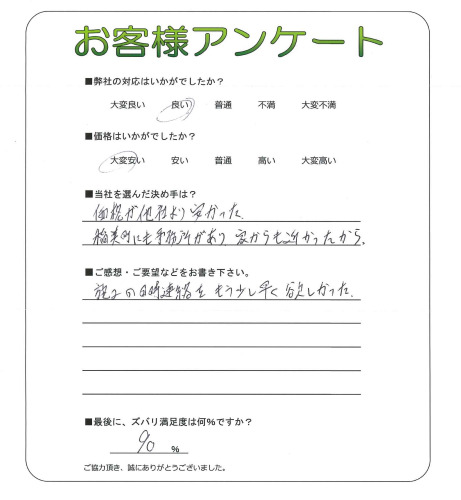 お客様アンケート
■弊社の対応はいかがでしたか?
大変良い 良い 普通 不満 大変不満
■価格はいかがでしたか?
大変安い 安い 普通 高い 大変高い
■当社を選んだ決め手は?
価格が他社より安かった。
稲美町にも事務所があり 家からも近かったから。
■ご感想・ご要望などをお書き下さい。
施工の日時連絡を もう少し早く 欲しかった。
■最後に、ズバリ満足度は何%ですか?
90 %
ご協力頂き、誠にありがとうございました。